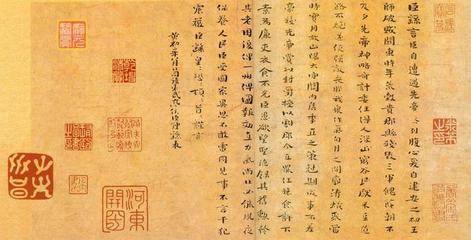 臣繇言臣自遭遇先帝忝列腹心爰自建安之初王
師破賊關東時年荒穀貴郡縣殘毀三軍餽饟朝不
及夕先帝神略奇計委任得人深山窮谷民獻米豆道
路不絕遂使強敵喪膽我衆作氣旬月之間廓清蟻聚當
時實用故山陽太守關內侯季直之策剋期成事不差
豪髮先帝賞以封爵授以劇郡今直罷任旅食許下
素爲廉吏衣食不充臣愚欲望聖德錄其舊勳矜
其老困復俾一州俾圖報效直力氣尚壯必能夙夜
保養人民臣受國家異恩不敢雷同見事不言干犯
宸嚴臣繇皇恐皇恐頓首頓首謹言
黃初二年八月日司徒東武亭侯臣鍾繇表